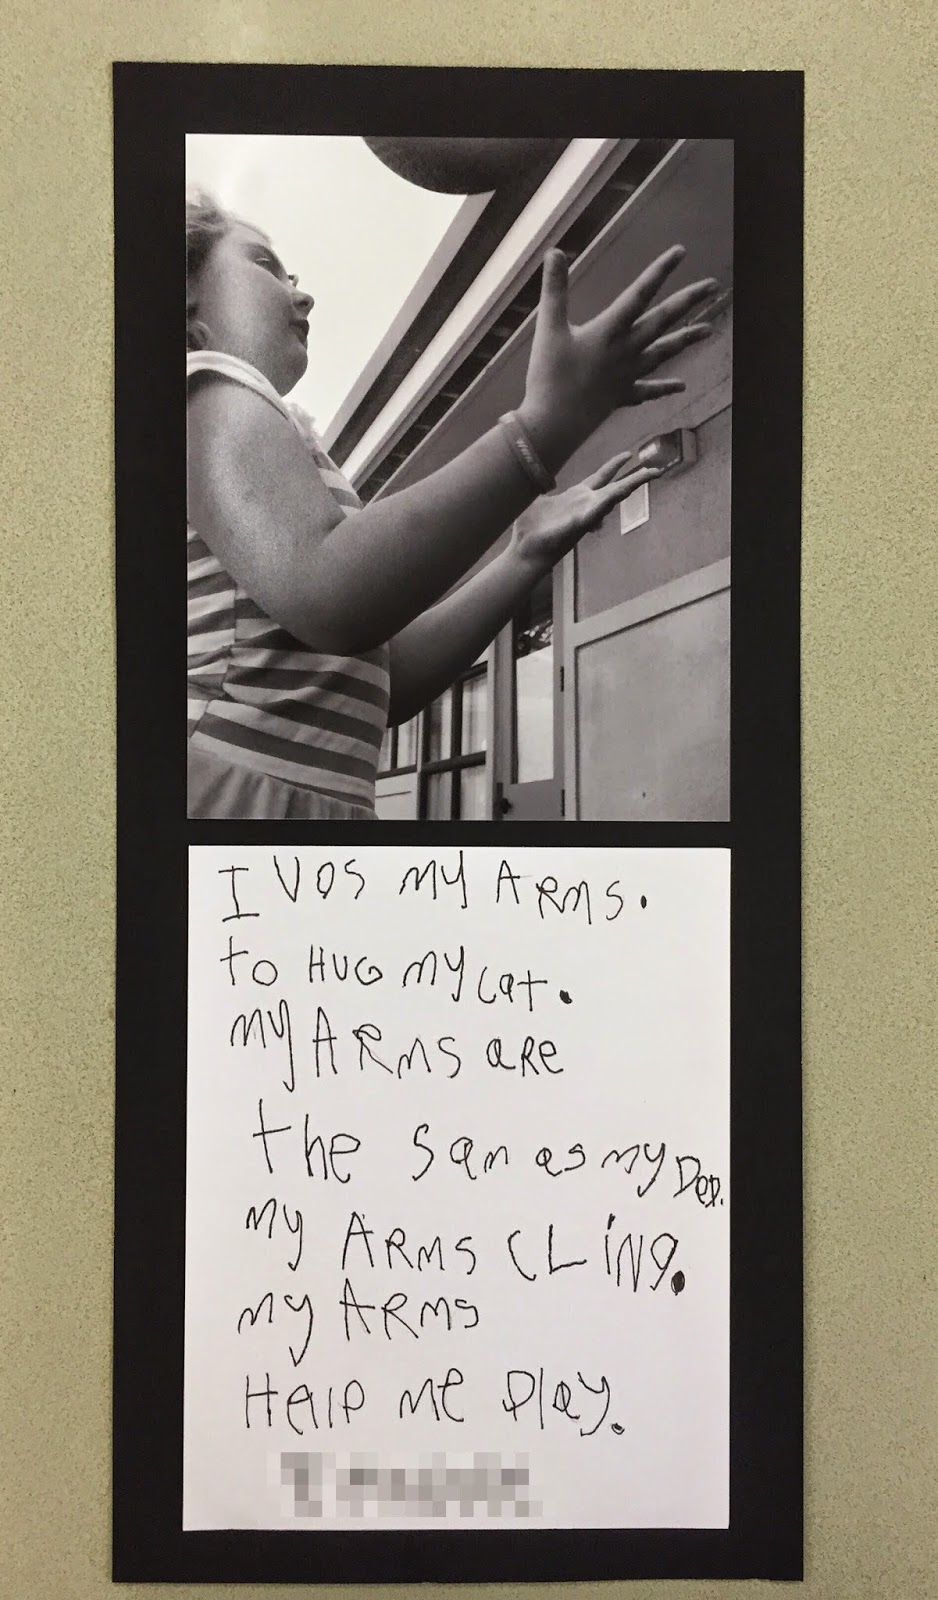 I VOS MY ARMS.
to HUG MY cat.
MY ARMS aRe
the San as my DeD.
MY ARMS CLiNg.
MY ARMS
HelP Me Play.